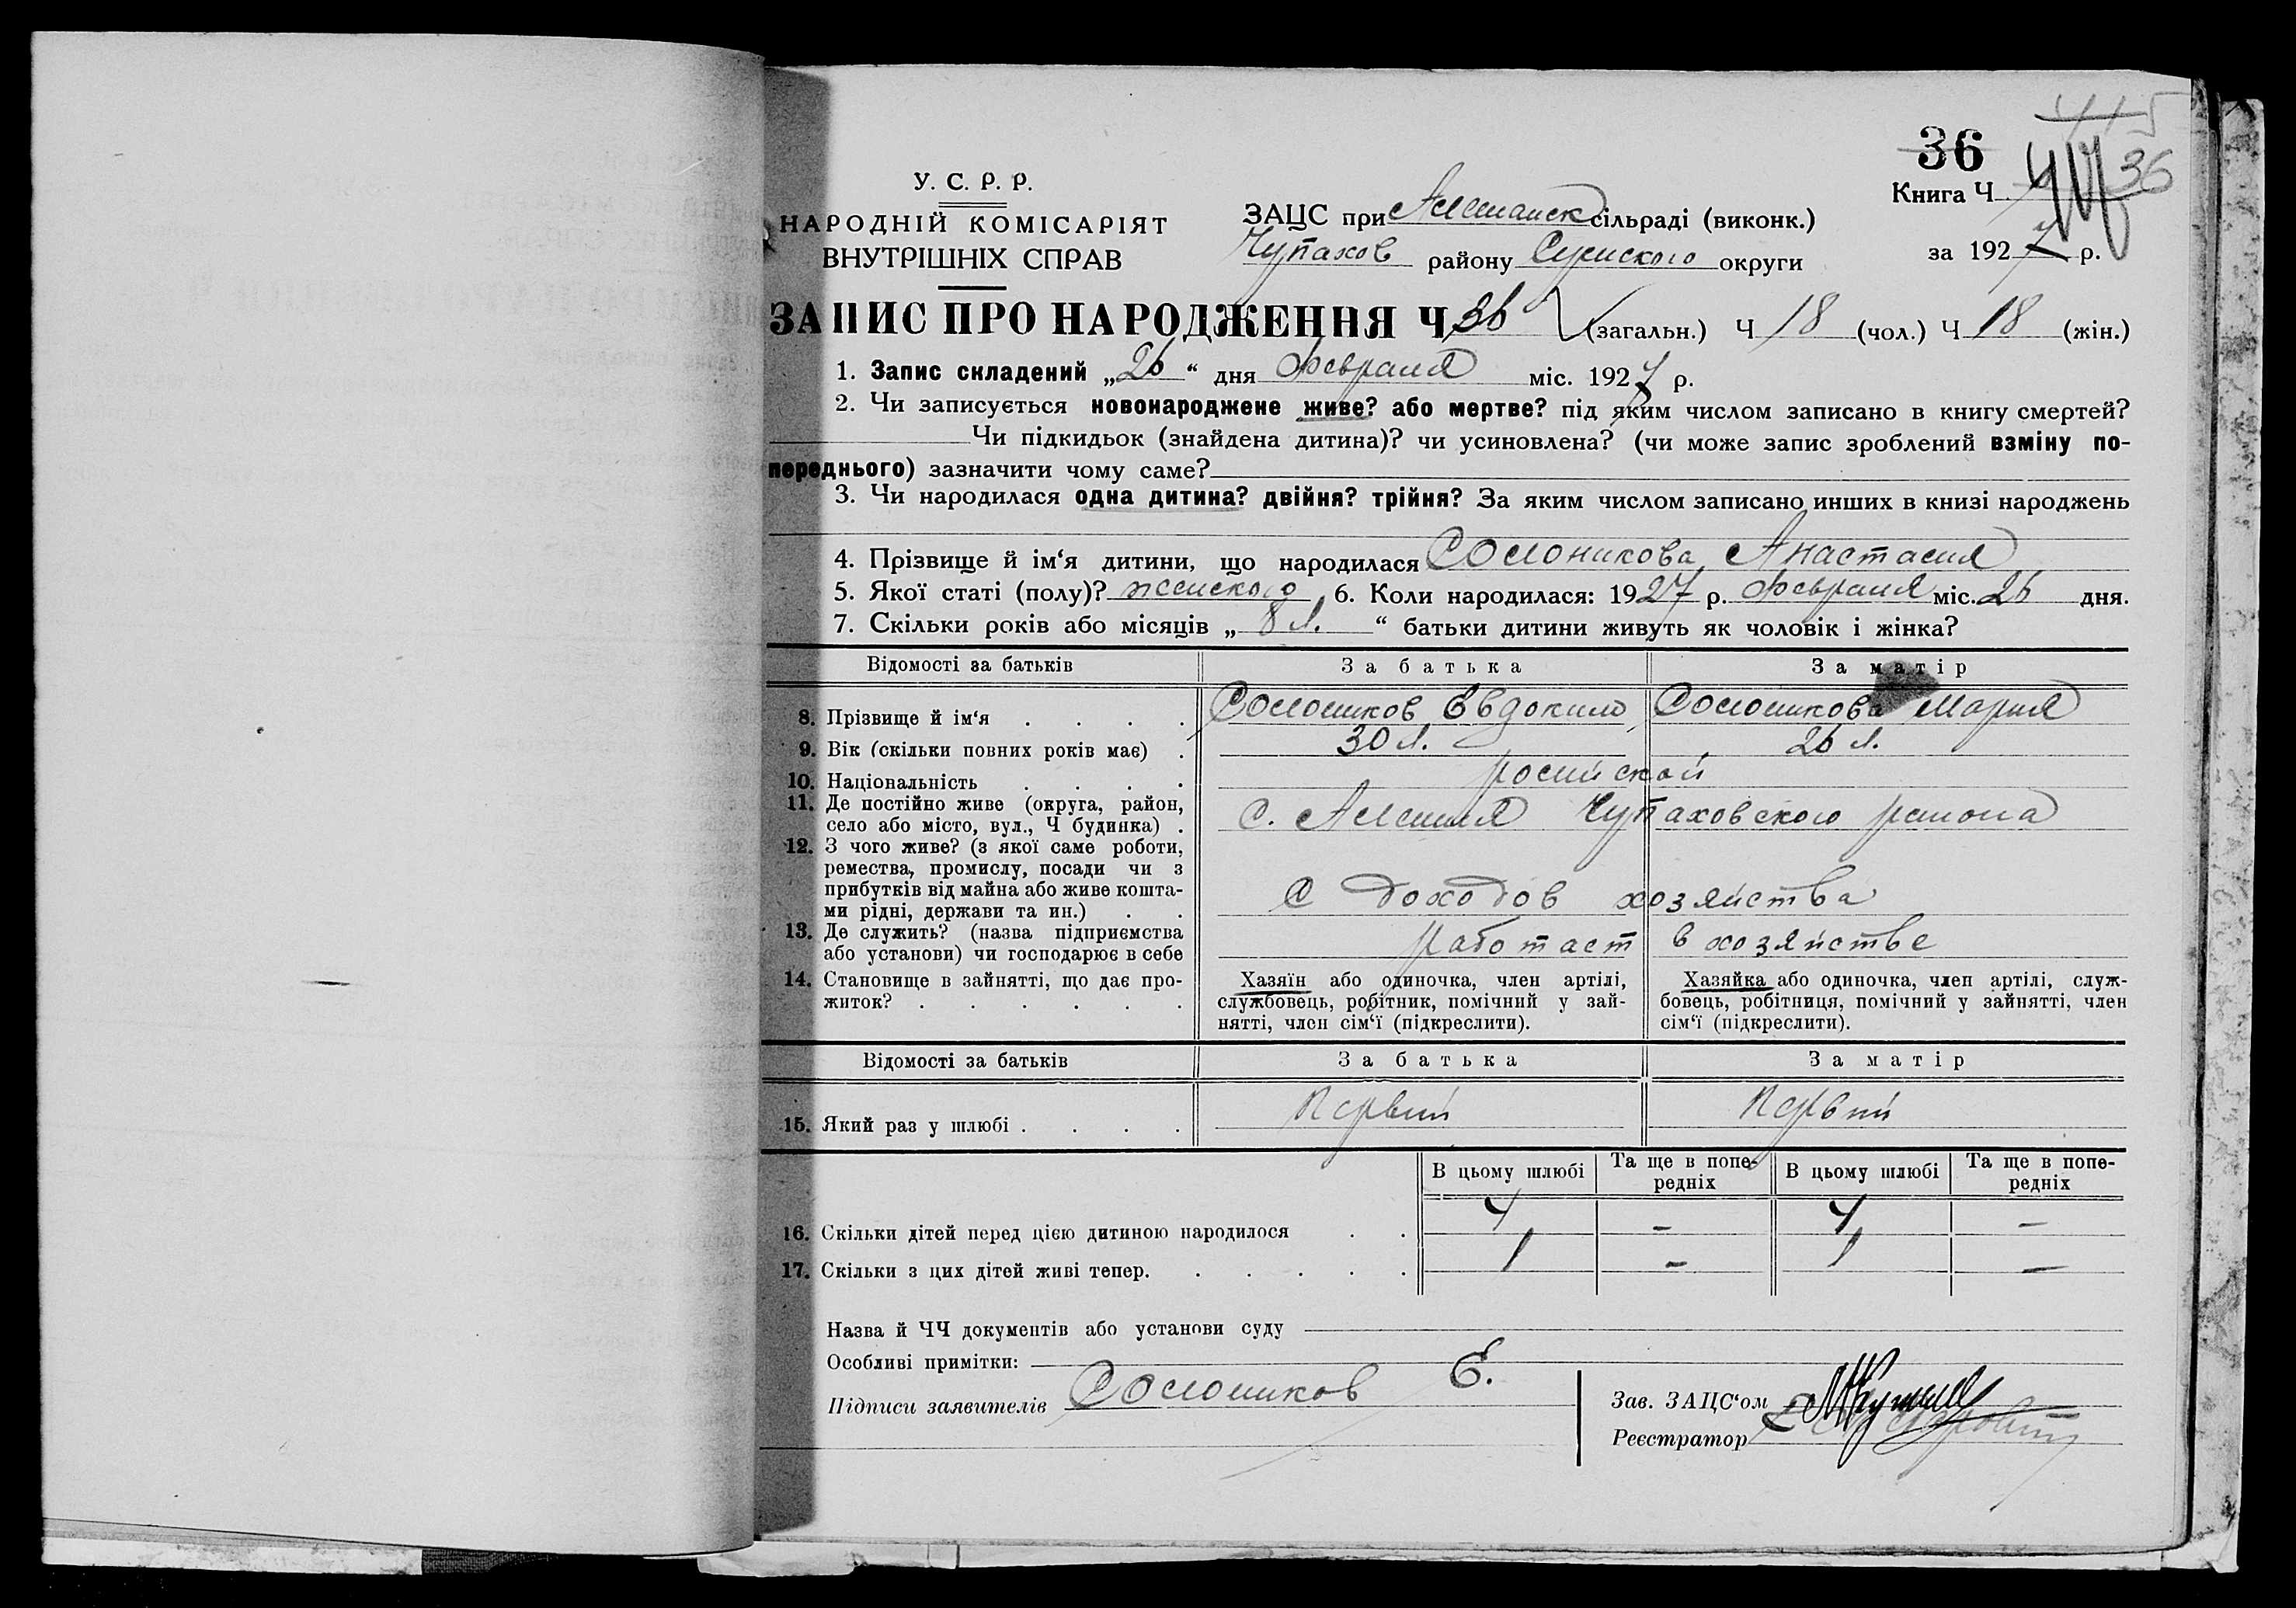 36
36
Книга Ч.
У. С. Р. Р.
НАРОДНІЙ КОМІСАРІЯТ
ВНУТРІШНІХ СПРАВ
ЗАЦС при Алешанск сільраді (виконк.)
Чупахов району Сумского округи
за 1927 р.
ЗАПИС ПРО НАРОДЖЕННЯ Ч 36 (загальн.) Ч 18 (чол.) Ч 18 (жін.)
1. Запис складений „26“ дня Февраля міс. 1927 р.
2. Чи записується новонароджене живе? або мертве? під яким числом записано в книгу смертей?
Чи підкидьок (знайдена дитина)? чи усиновлена? (чи може запис зроблений взміну по-
переднього) зазначити чому саме?
3. Чи народилася одна дитина? двійня? трійня? За яким числом записано инших в книзі народжень
4. Прізвище й ім‘я дитини, що народилася Солоникова Анастасия
5. Якої статі (полу)? женского 6. Коли народилася: 1927 р. Февраля міс. 26 дня.
7. Скільки років або місяців „8 л.“ батьки дитини живуть як чоловік і жінка?
Відомості за батьків За батька За матір
8. Прізвище й ім‘я . . . . Солоников Евдоким Солоникова Мария
9. Вік (скільки повних років має) . 30 л. 26 л.
10. Національність . . . . росийской
11. Де постійно живе (округа, район,
село або місто, вул., Ч будинка) . с. Алешня Чупаховского района
12. З чого живе? (з якої саме роботи,
ремества, промислу, посади чи з
прибутків від майна або живе кошта-
ми рідні, держави та ин.) . . С доходов хозяйства
13. Де служить? (назва підприємства
або установи) чи господарює в себе работает в хозяйстве
14. Становище в зайнятті, що дає про-
житок? . . . . . .
Хазяїн або одиночка, член артілі,
службовець, робітник, помічний у зай-
нятті, член сім‘ї (підкреслити).
Хазяйка або одиночка, член артілі, служ-
бовець, робітниця, помічний у зайнятті, член
сім‘ї (підкреслити).
Відомості за батьків За батька За матір
15. Який раз у шлюбі . . . . Первий Первий
В цьому шлюбі Та ще в попе-
редніх В цьому шлюбі Та ще в попе-
редніх
16. Скільки дітей перед цією дитиною народилося . . 4 – 4 –
17. Скільки з цих дітей живі тепер. . . . . . 1 – 1 –
Назва й ЧЧ документів або установи суду
Особливі примітки:
Підписи заявителів Солоников Е.
Зав. ЗАЦС‘ом
Реєстратор